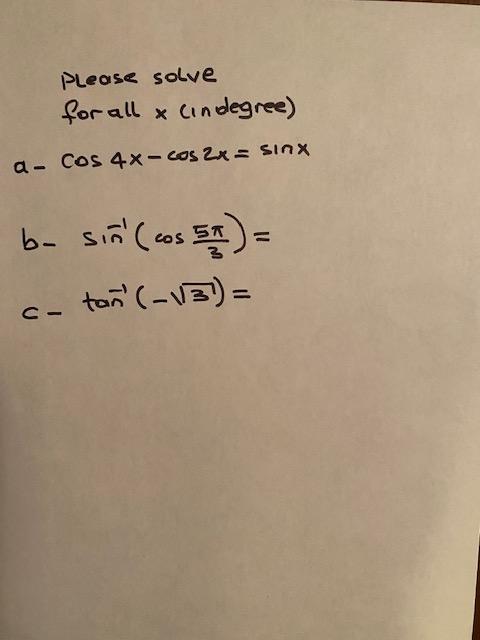 Please solve
for all x (in degree)
a- cos 4x - cos 2x = sin x
b- sin⁻¹ (cos 5π/3) =
c- tan⁻¹ (-√3) =